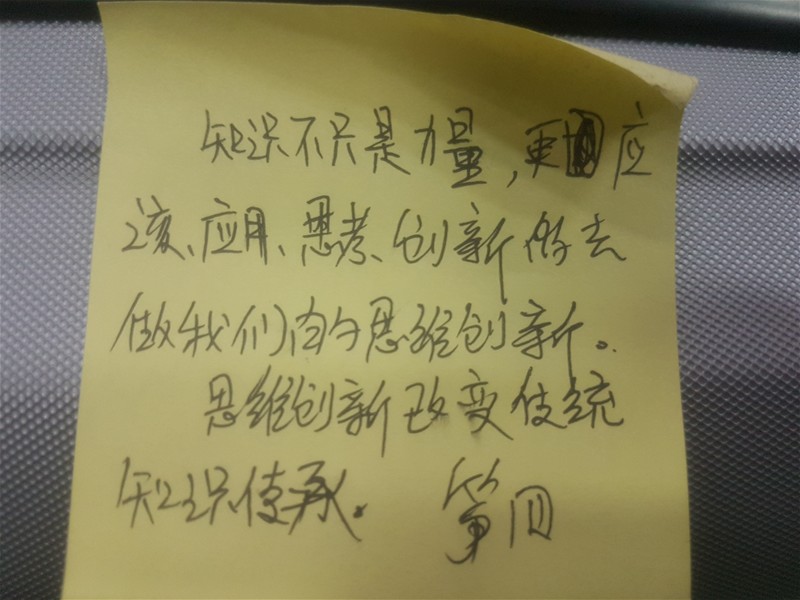 知识不只是力量，更应
该、应用、思考、创新的去
做我们的思维创新。
思维创新改变传统
知识传承。 第四